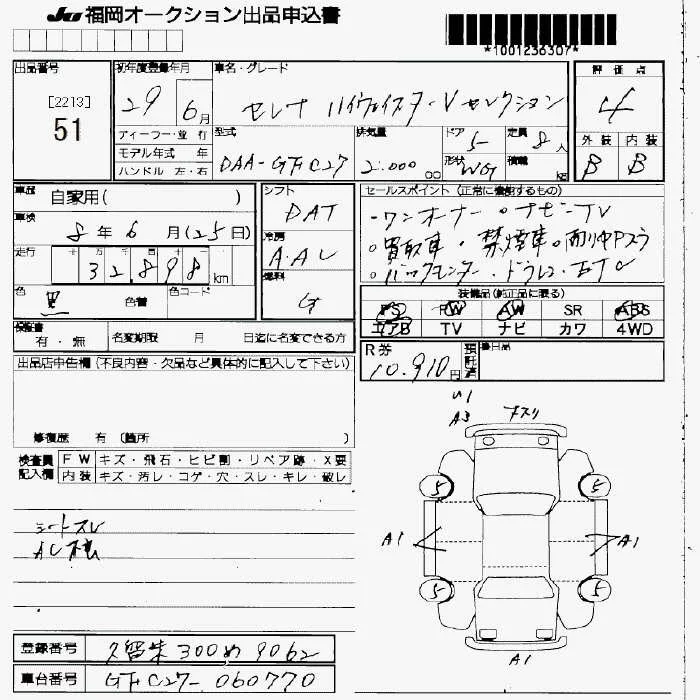 JU 福岡オークション出品申込書
*1001236307*
出品番号
[2213]
51
初年度登録年月
29 6月
車名・グレード
セレナ ハイウェイスターVセレクション
評価点
4
外装 内装
B B
ディーラー・並行
モデル年式 年
ハンドル 左・右
型式
DAA-GFC27
排気量
2.000 cc
ドア
5
形状
WG
定員
8人
積載
kg
車歴
自家用( )
車検
8年 6月(25日)
走行
十万千百十
32,898 km
色
色替
色コード
シフト
DAT
冷房
AAC
燃料
G
セールスポイント(正常に機能するもの)
・ワンオーナー ・ナビ・TV
・買取車・禁煙車
・バックモニター・ドラレコ・ETC
装備品(純正品に限る)
PS PW AW SR ABS
エアB TV ナビ カワ 4WD
検査書
有・無
名変期限 月 日迄に名変できる方
R券
10,910円
預託済
後日品
出品店申告欄(不良内容・欠品など具体的に記入して下さい)
修復歴 有 (箇所 )
検査員記入欄
FW キズ・飛石・ヒビ割・リペア跡・X要
内装 キズ・汚レ・コゲ・穴・スレ・キレ・破レ
シートスレ
W1
A3
5 5
A1 A1
5 5
A1
登録番号
久留米 300 め 9062
車台番号
GFC27-060770